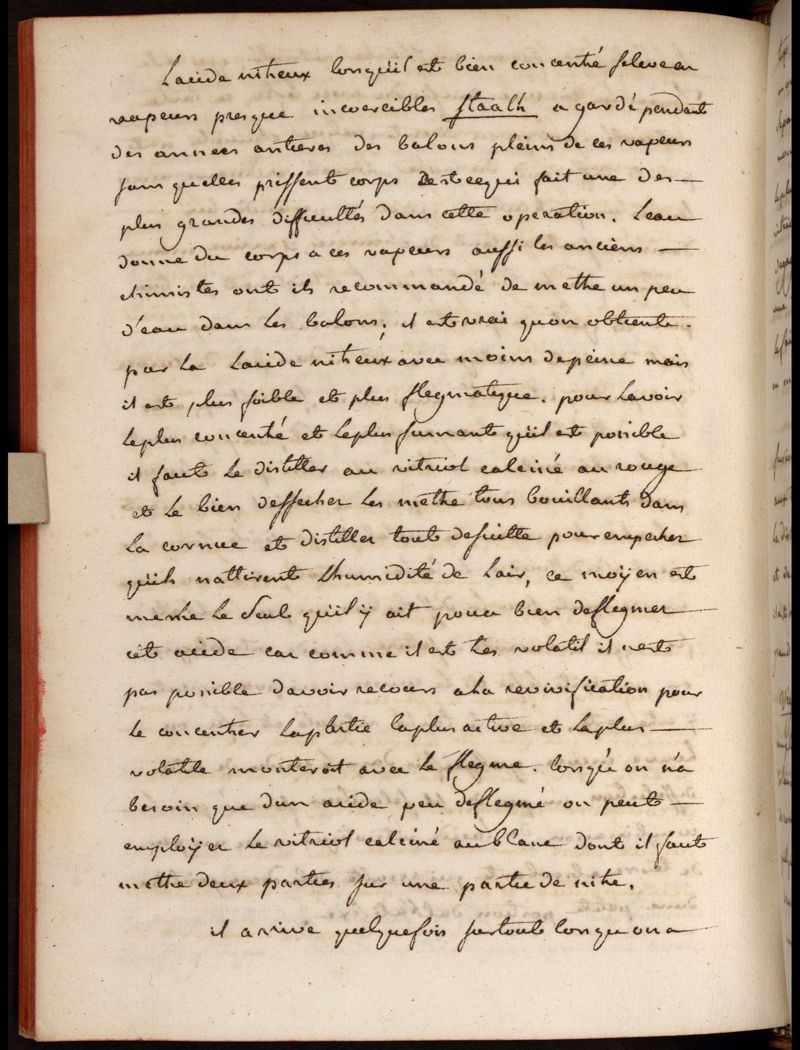 Lacide nitreux lorsquil est bien concentré seleve en
vapeurs presque incoercibles staalh a gardé pendant
des annees entieres des balons pleins de ces vapeurs
sans quelles prissent corps cest ce qui fait une des
plus grandes difficultés dans cette operation. Leau
donne du corps a ces vapeurs aussi les anciens
chimistes ont ils recommandé de mettre un peu
d'eau dans les balons, il est vrai quon obtient
par la Lacide nitreux avec moins de peine mais
il est plus foible et plus flegmatique. pour Lavoir
le plus concentré et le plus fumant quil est possible
il faut le distiller au vitriol calciné au rouge
et le bien dessecher les mettre tous bouillants dans
la cornue et distiller tout de suitte pour empecher
quils nattirent Lhumidité de Lair, ce moÿen est
meme le seul quil ÿ ait pour bien deflegmer
cet acide car comme il est tres volatil il nest
pas possible davoir recours a la revivification pour
le concentrer la partie la plus active et la plus
volatile monteroit avec le flegme. lorsqu'on n'a
besoin que dun acide peu deflegmé on peut
emploÿer le vitriol calciné au blanc dont il faut
mettre deux parties sur une partie de nitre.
il arrive quelquefois surtout lorsqu on a